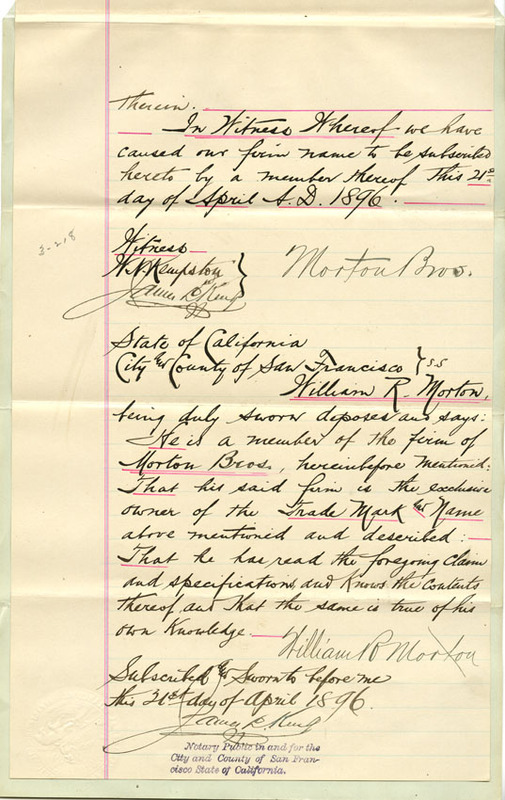 therein.
In Witness Whereof we have
caused our firm name to be subscribed
hereto by a member thereof this 21st
day of April A.D. 1896.
3-218
Witness
W. N. Kempston
James L. King
Morton Bros.
State of California
City & County of San Francisco } s.s
William R Morton,
being duly sworn deposes and says:
He is a member of the firm of
Morton Bros., hereinbefore mentioned:
That his said firm is the exclusive
owner of the Trade Mark & Name
above mentioned and described:
That he has read the foregoing claim
and specifications, and knows the contents
thereof and that the same is true of his
own knowledge.
William R Morton
Subscribed & Sworn to before me
this 21st day of April 1896.
James L. King
Notary Public in and for the
City and County of San Fran-
cisco State of California.